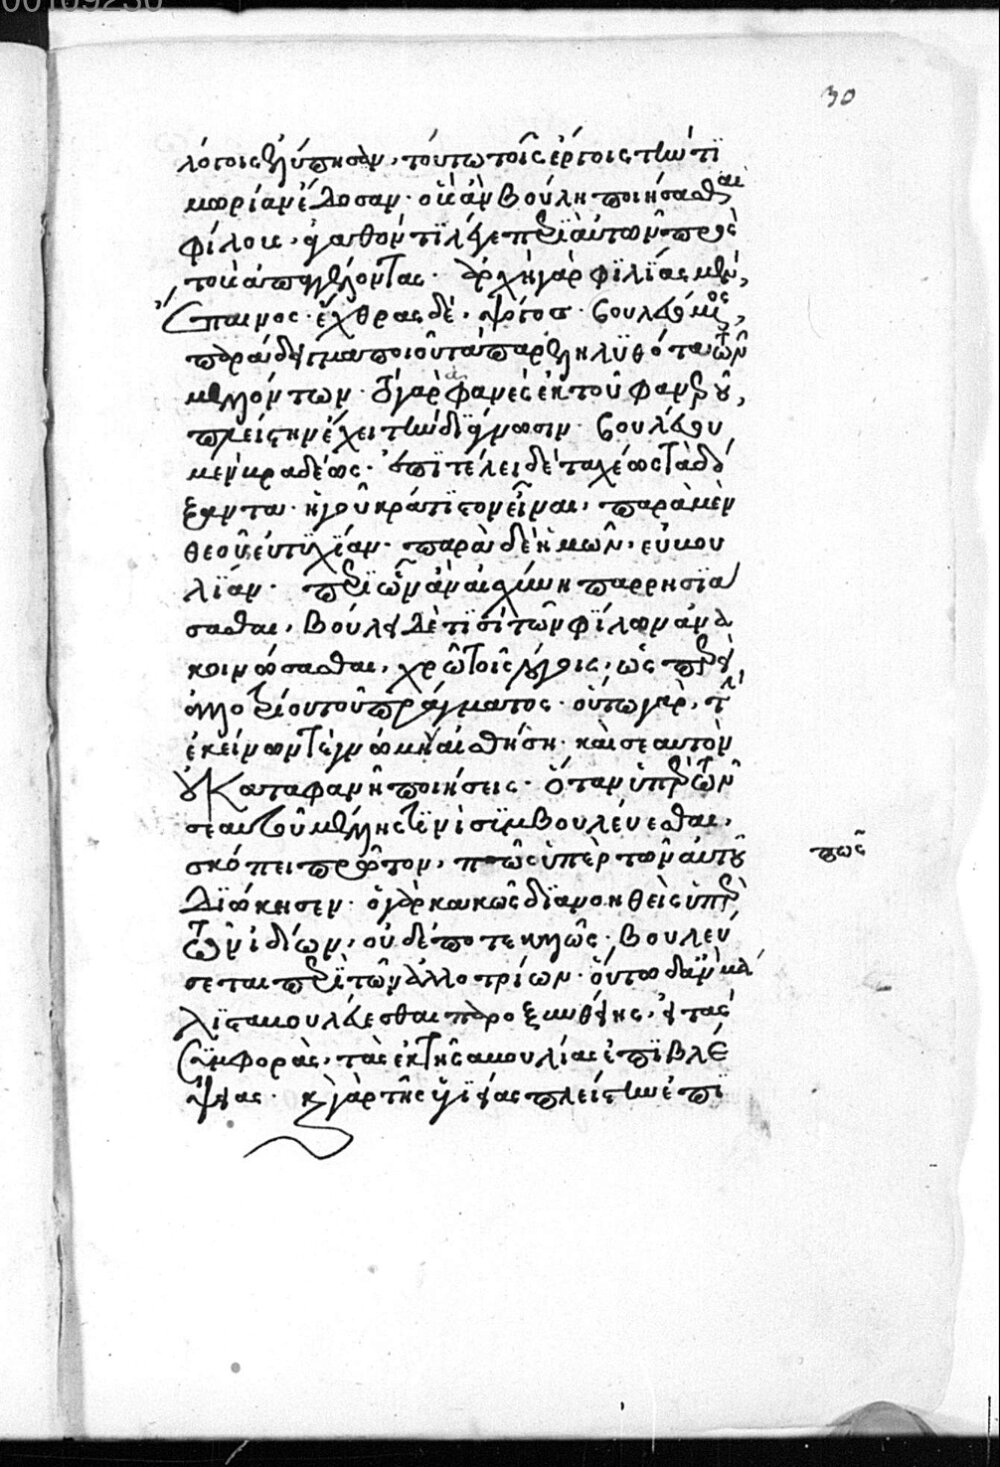 00109230
30
λόγοις ἐλύπησαν, τούτω τοῖς ἔργοις τὴν τι
μωρίαν ἔδοσαν· οὓς ἂν βούλη ποιήσασθαι
φίλους, ἀγαθόν τι λέγε περὶ αὐτῶν πρὸς
τοὺς ἀπαγγέλλοντας· ἀρχὴ γὰρ φιλίας μὲν,
ἔπαινος· ἔχθρας δὲ, ψόγος· βουλευόμενος,
παράδειγμα ποιοῦ τὰ παρεληλυθότα τῶν
μελλόντων· τὸ γὰρ ἀφανὲς ἐκ τοῦ φανεροῦ,
πλείστην ἔχει τὴν διάγνωσιν· βουλεύου
μὲν βραδέως· ἐπιτέλει δὲ ταχέως τὰ δό
ξαντα· ἡγοῦ κράτιστον εἶναι, παρὰ μὲν
θεοῦ εὐτυχίαν· παρὰ δὲ ἡμῶν, εὐβου
λίαν· περὶ ὧν ἂν αἰσχύνη παρρησιά
σασθαι, βούλει δέ τισι τῶν φίλων ἀνα
κοινώσασθαι, χρῶ τοῖς λόγοις, ὡς περὶ
ἀλλοτρίου τοῦ πράγματος· οὕτω γὰρ, τὴν
ἐκείνων τε γνώμην αἰσθήση· καὶ σεαυτὸν
οὐ καταφανῆ ποιήσεις· Ὅταν ὑπὲρ τῶν
σεαυτοῦ μέλλης τινὶ συμβουλεύεσθαι,
σκόπει πρῶτον, πῶς ὑπὲρ τῶν αὐτοῦ
πῶς
διώκησεν· ὁ γὰρ κακῶς διανοηθεὶς ὑπὲρ
τῶν ἰδίων, οὐδέποτε καλῶς· βουλεύ
σεται περὶ τῶν ἀλλοτρίων· οὕτω δ' ἂν μά
λιστα βουλεύεσθαι παροξυνθείης, εἰ τὰς
συμφορὰς, τὰς ἐκ τῆς ἀβουλίας ἐπιβλέ
ψειας· καὶ γὰρ τῆς ὑγιείας πλείστην ἐπι